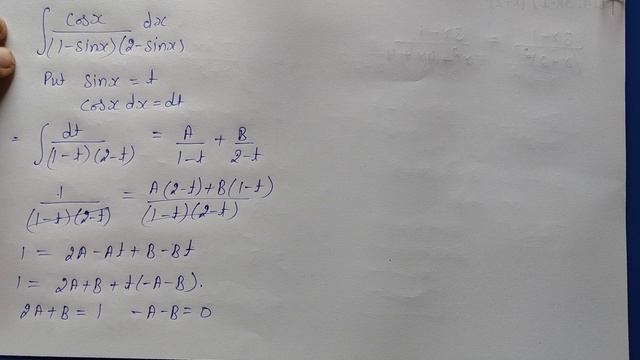 ∫ cosx / (1-sinx)(2-sinx) dx
Put sinx = t
cosx dx = dt
= ∫ dt / (1-t)(2-t) = A / 1-t + B / 2-t
1 / (1-t)(2-t) = A(2-t)+B(1-t) / (1-t)(2-t)
1 = 2A-At+B-Bt
1 = 2A+B+t(-A-B).
2A+B=1 -A-B=0